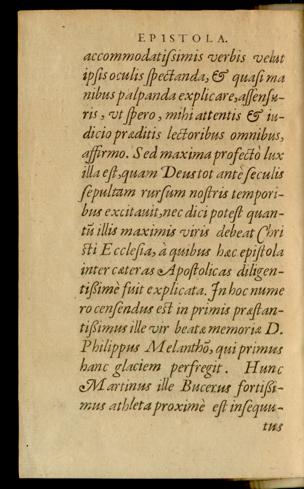 EPISTOLA.
accommodatißimis verbis velut
ipsis oculis spectanda, & quasi ma
nibus palpanda explicare, assensu-
ris, vt spero, mihi attentis & iu-
dicio præditis lectoribus omnibus,
affirmo. Sed maxima profectò lux
illa est, quam Deus tot antè seculis
sepultam rursum nostris tempori-
bus excitauit, nec dici potest quan-
tũ illis maximis viris debeat Chri
sti Ecclesia, à quibus hæc epistola
inter cæteras Apostolicas diligen-
tißimè fuit explicata. In hoc nume
ro censendus est in primis præstan-
tißimus ille vir beatæ memoriæ D.
Philippus Melanthõ, qui primus
hanc glaciem perfregit. Hunc
Martinus ille Bucerus fortißi-
mus athleta proximè est insequu-
tus